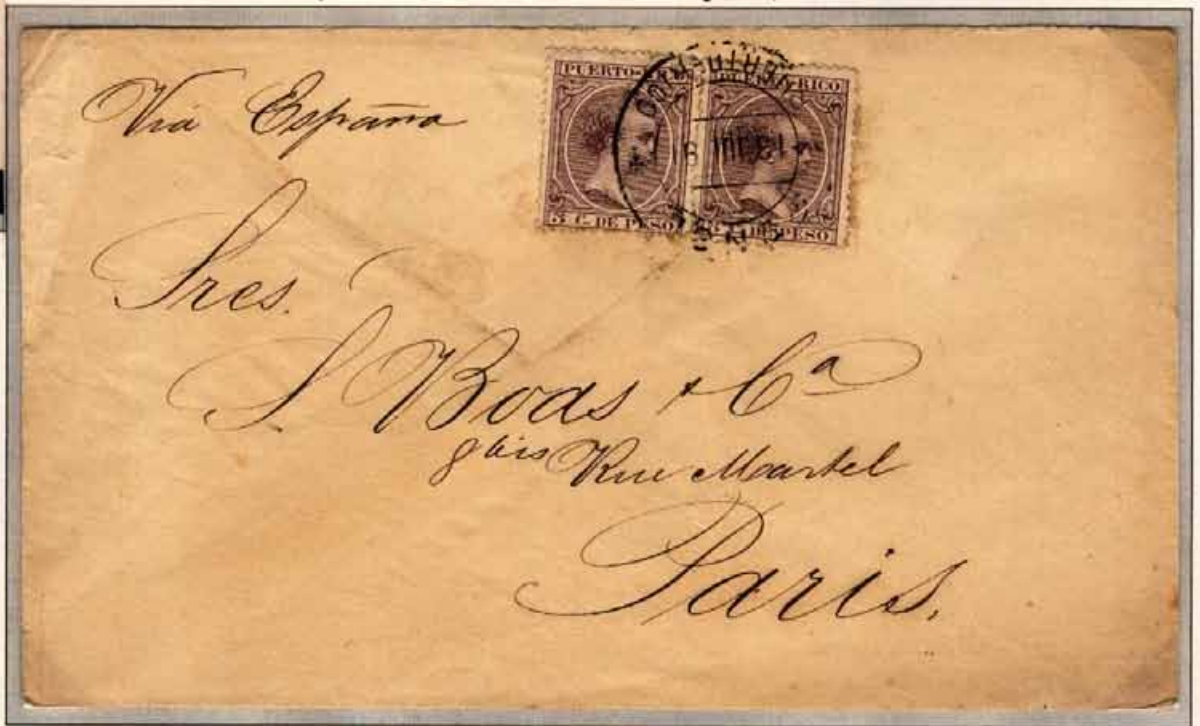 Via España
PUERTO-RICO
5 C. DE PESO
DE PESO
Sres.
S. Boas & Cª
8 bis Rue Martel
Paris.